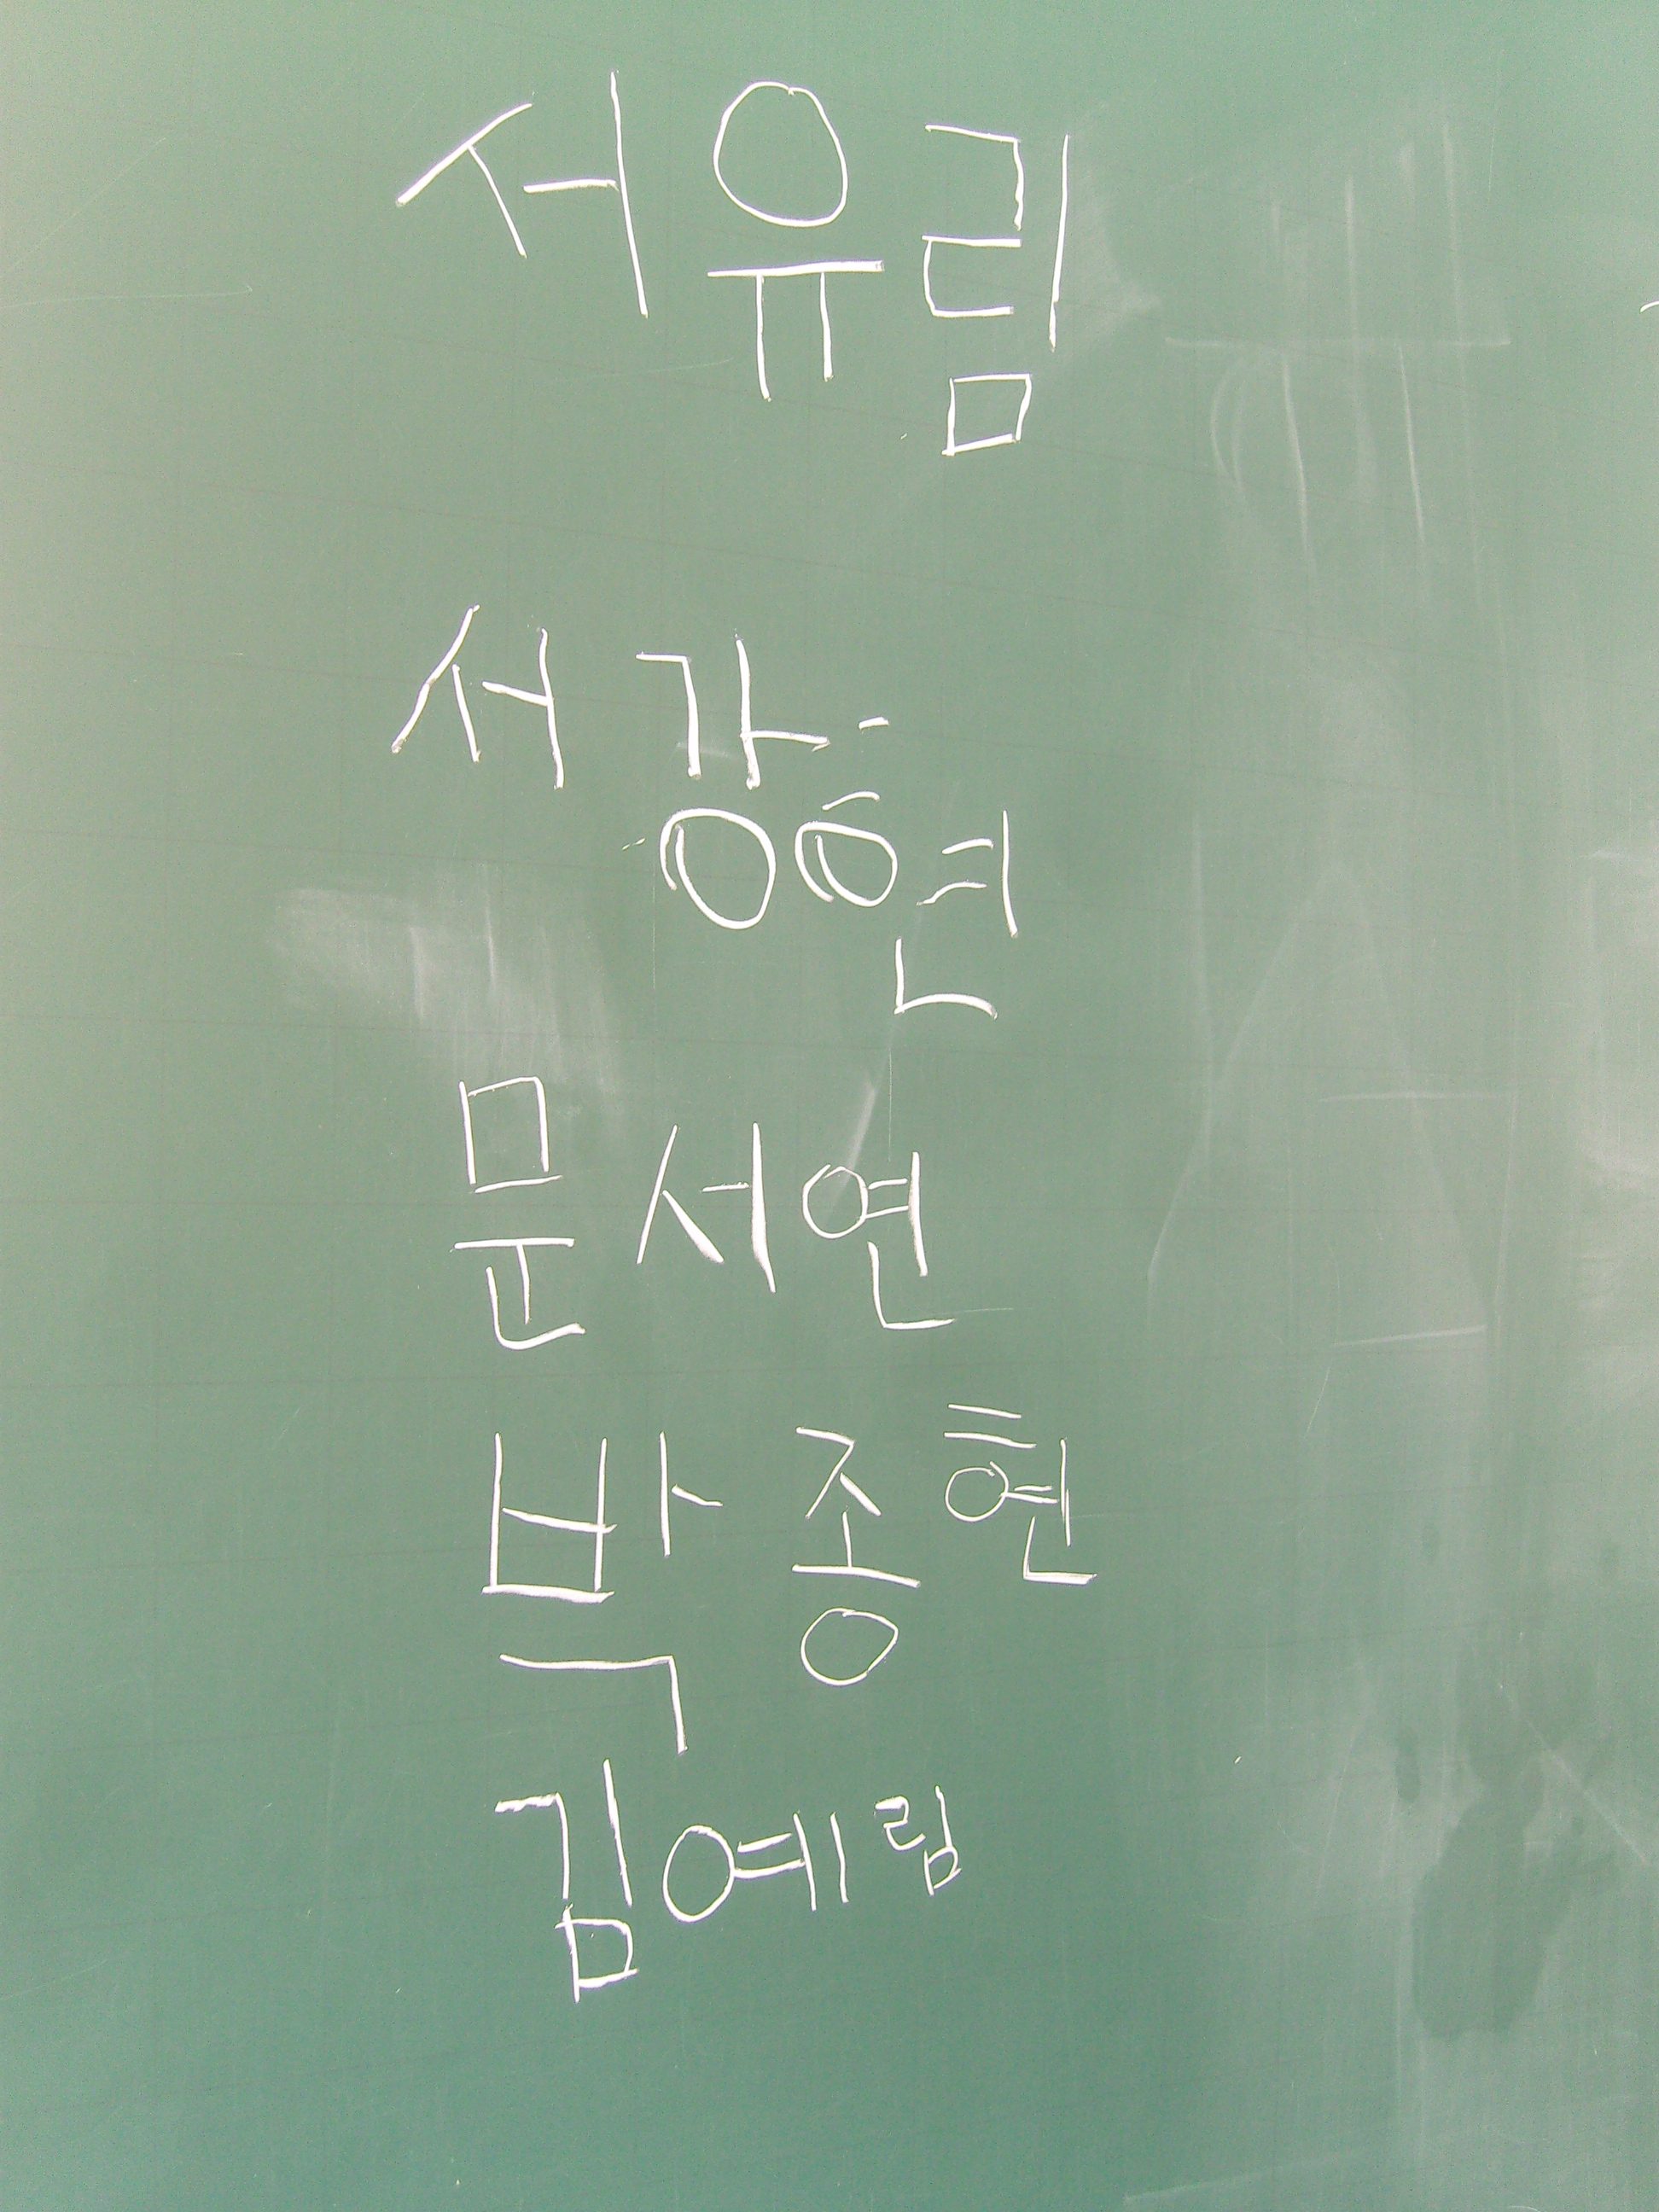 서유림
서강현
문서연
박종현
김예림